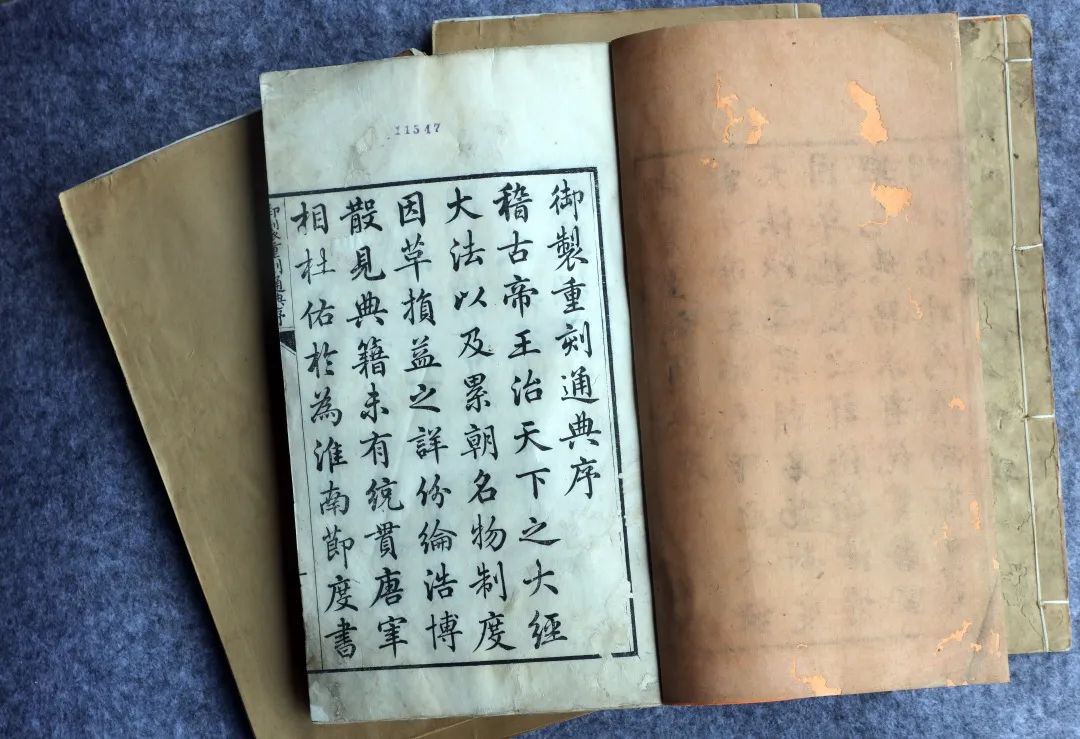 11547
御製重刻通典序
稽古帝王治天下之大經
大法以及累朝名物制度
因革損益之詳份綸浩博
散見典籍未有統貫唐宰
相杜佑於為淮南節度書